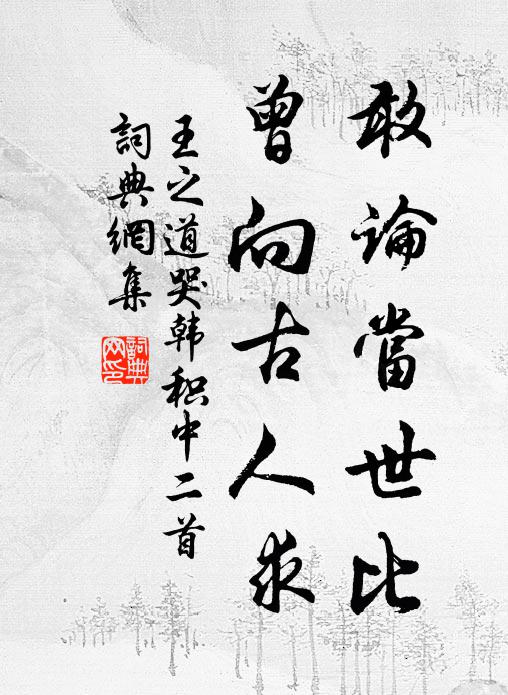 敢論當世比
曾向古人求
王之道哭韩积中二首
詞典網集
詞典网印